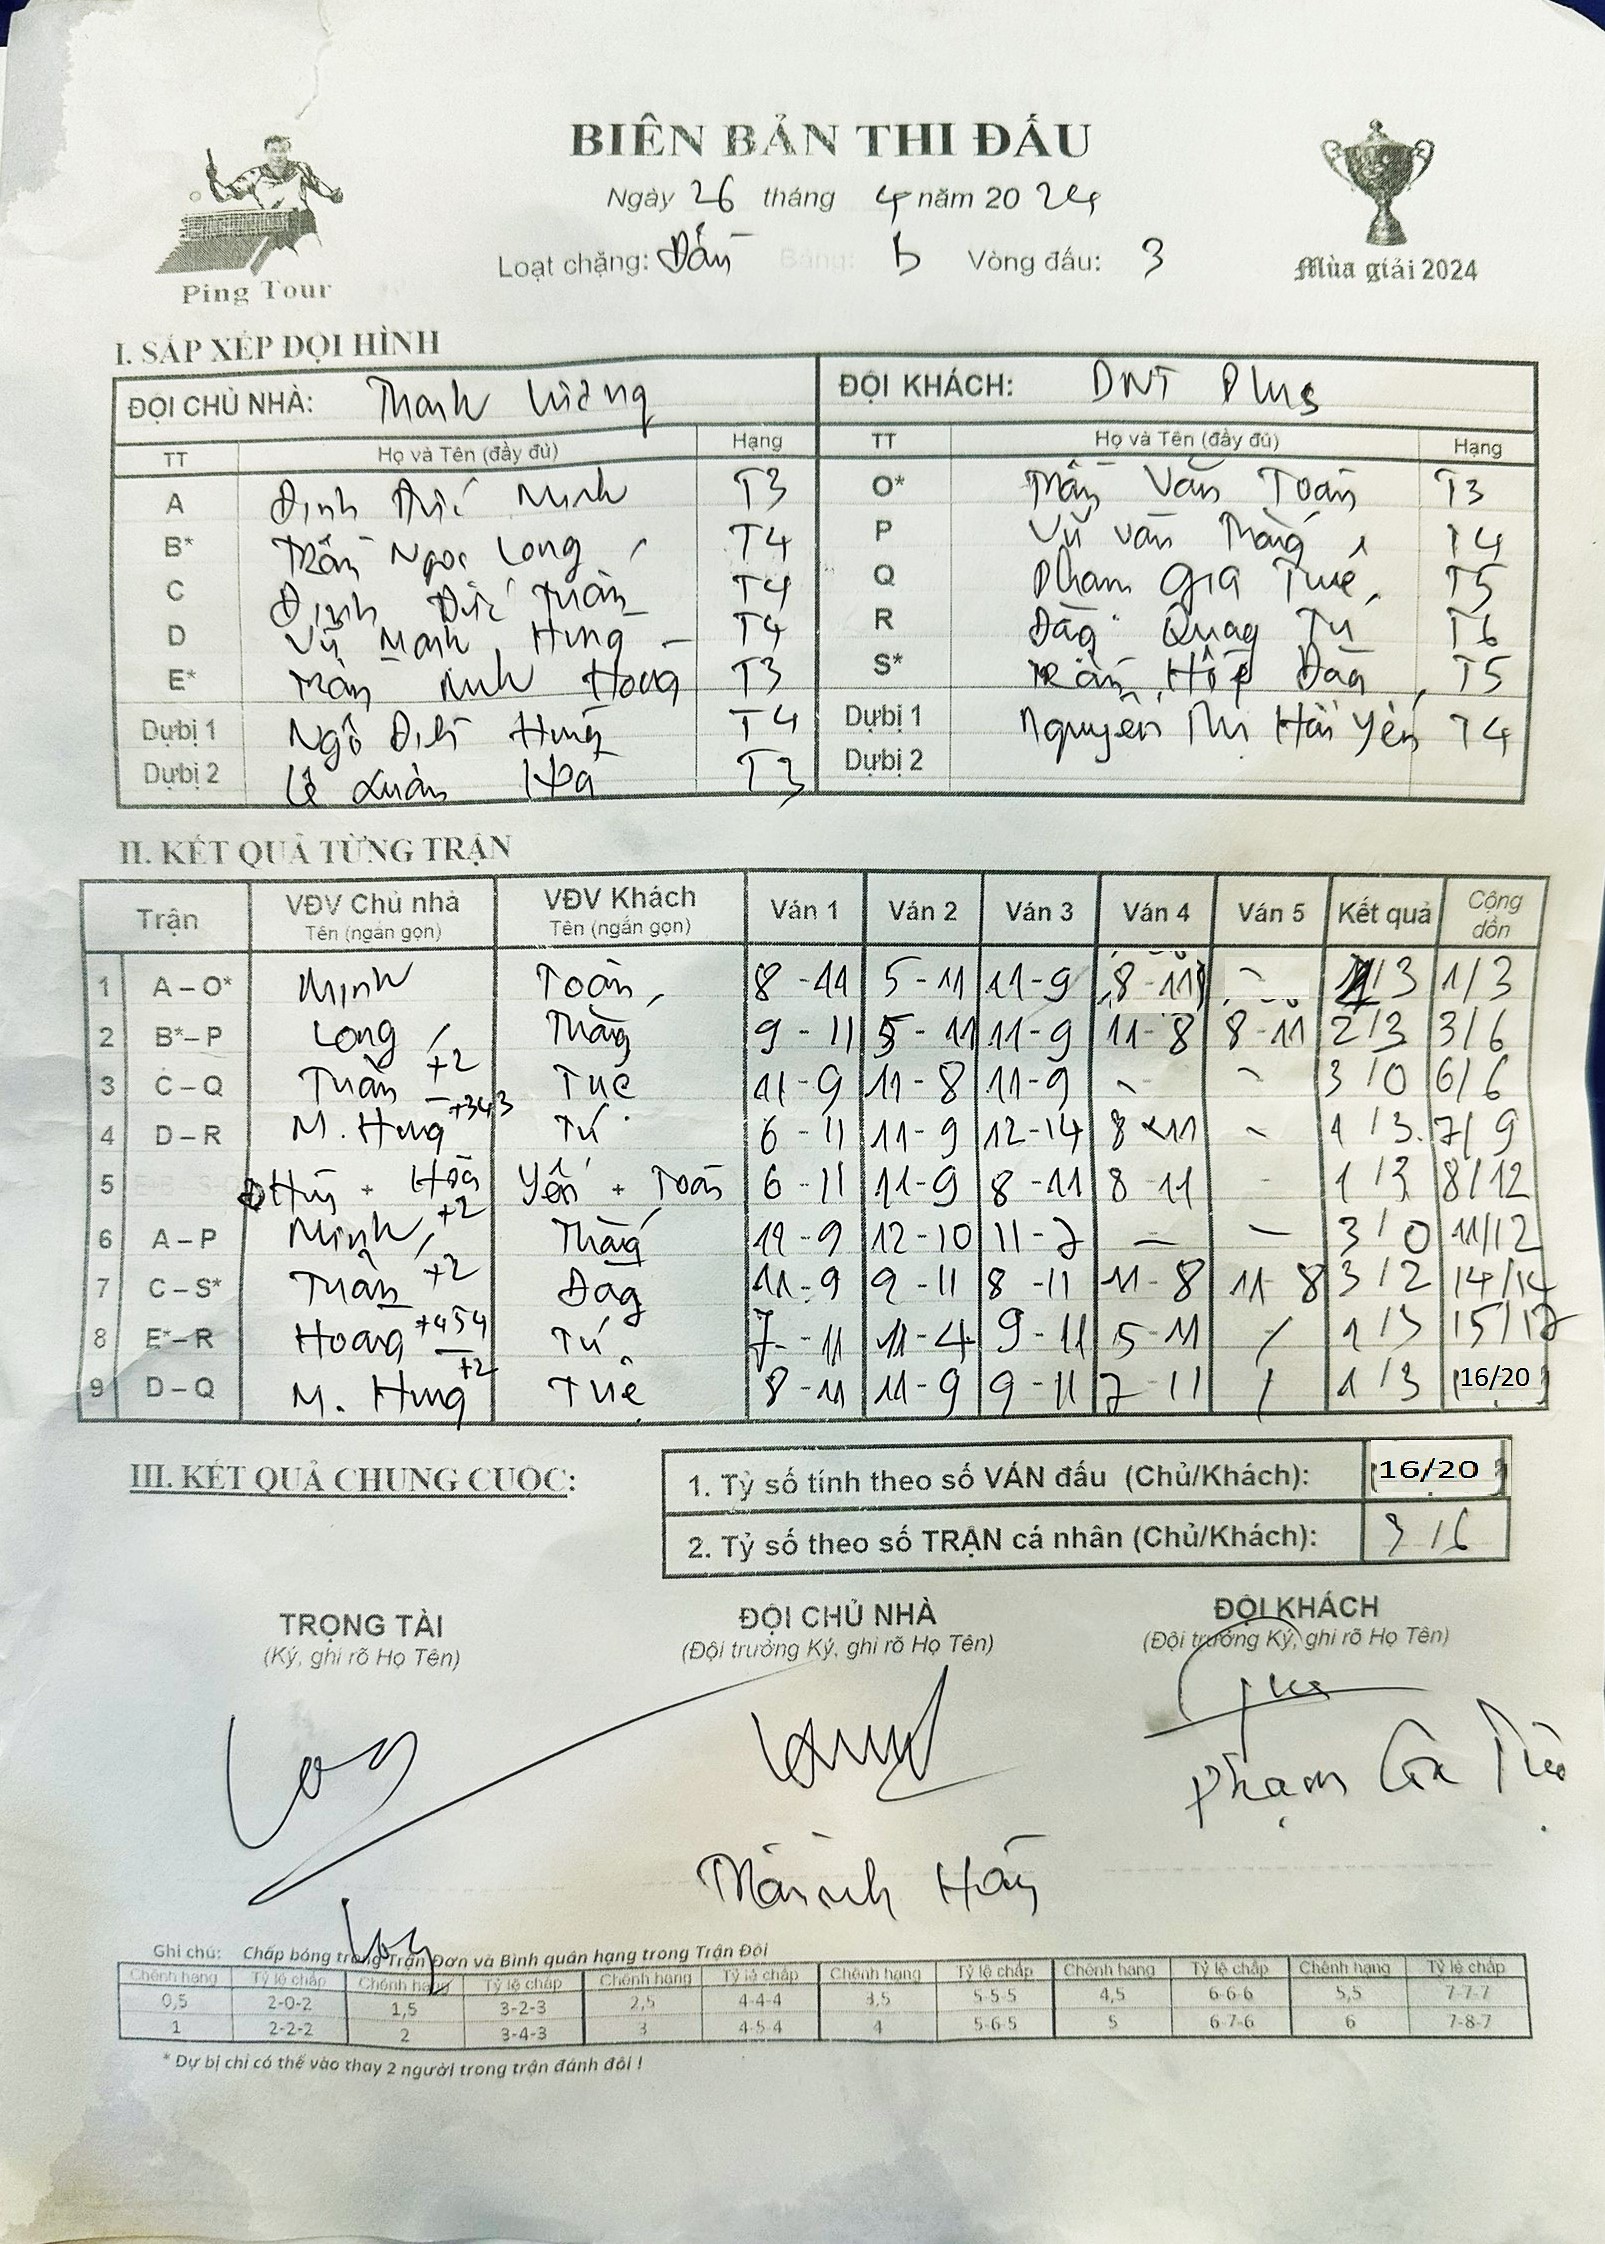 BIÊN BẢN THI ĐẤU
Ngày 26 tháng 4 năm 20 24
Loạt chặng: Đầu Bảng: b Vòng đấu: 3
Ping Tour
Mùa giải 2024
I. SẮP XẾP ĐỘI HÌNH
ĐỘI CHỦ NHÀ: Thanh ĐỘI KHÁCH: DNT Plus
TT Họ và Tên (đầy đủ) Hạng TT Họ và Tên (đầy đủ) Hạng
A Đinh Đức Minh T3 O* Trần Văn Toàn T3
B* Trần Ngọc Long T4 P Vũ Văn Thắng T4
C Đinh Đức Tuấn T4 Q Phạm Gia Tuệ T5
D Vũ Mạnh Hùng T4 R Quang Tú T6
E* Trần Minh Hoàng T3 S* Trần Đăng T5
Dự bị 1 Ngô Hùng T4 Dự bị 1 Nguyễn Thị Hải Yến T4
Dự bị 2 Lê Xuân Hòa T3 Dự bị 2
II. KẾT QUẢ TỪNG TRẬN
Trận VĐV Chủ nhà Tên (ngắn gọn) VĐV Khách Tên (ngắn gọn) Ván 1 Ván 2 Ván 3 Ván 4 Ván 5 Kết quả Cộng dồn
1 A – O* Minh Toàn 8 - 11 5 - 11 11 - 9 8 - 11 - 1/3 1/3
2 B* – P Long Thắng 9 - 11 5 - 11 11 - 9 11 - 8 8 - 11 2/3 3/6
3 C – Q Tuấn +2 Tuệ 11 - 9 11 - 8 11 - 9 - - 3/0 6/6
4 D – R M. Hùng +343 Tú 6 - 11 11 - 9 12 - 14 8 - 11 - 1/3 7/9
5 Đ Hùng + Hòa Yến + Toàn 6 - 11 11 - 9 8 - 11 8 - 11 - 1/3 8/12
6 A – P Minh +2 Thắng 12 - 9 12 - 10 11 - 7 - - 3/0 11/12
7 C – S* Tuấn +2 Đăng 11 - 9 9 - 11 8 - 11 11 - 8 11 - 8 3/2 14/14
8 E* – R Hoàng +454 Tú 7 - 11 11 - 4 9 - 11 5 - 11 / 1/3 15/17
9 D – Q M. Hùng +2 Tuệ 8 - 11 11 - 9 9 - 11 7 - 11 / 1/3 16/20
III. KẾT QUẢ CHUNG CUỘC:
1. Tỷ số tính theo số VÁN đấu (Chủ/Khách): 16/20
2. Tỷ số theo số TRẬN cá nhân (Chủ/Khách): 3/6
TRỌNG TÀI ĐỘI CHỦ NHÀ ĐỘI KHÁCH
(Ký, ghi rõ Họ Tên) (Đội trưởng Ký, ghi rõ Họ Tên) (Đội trưởng Ký, ghi rõ Họ Tên)
Long
Phạm Gia Tuệ
Long
Ghi chú: Chấp bóng trong Trận Đơn và Bình quân hạng trong Trận Đôi
Chênh hạng Tỷ lệ chấp Chênh hạng Tỷ lệ chấp Chênh hạng Tỷ lệ chấp Chênh hạng Tỷ lệ chấp Chênh hạng Tỷ lệ chấp Chênh hạng Tỷ lệ chấp
0,5 2-0-2 1,5 3-2-3 2,5 4-4-4 3,5 5-5-5 4,5 6-6-6 5,5 7-7-7
1 2-2-2 2 3-4-3 3 4-5-4 4 5-6-5 5 6-7-6 6 7-8-7
* Dự bị chỉ có thể vào thay 2 người trong trận đánh đôi !